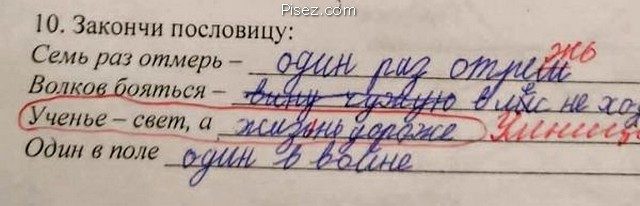 Pisez.com
10. Закончи пословицу:
Семь раз отмерь – один раз отреш жь
Волков бояться – вину чужую в лес не хо
Ученье – свет, а жизнь дороже Умниц
Один в поле один в войне